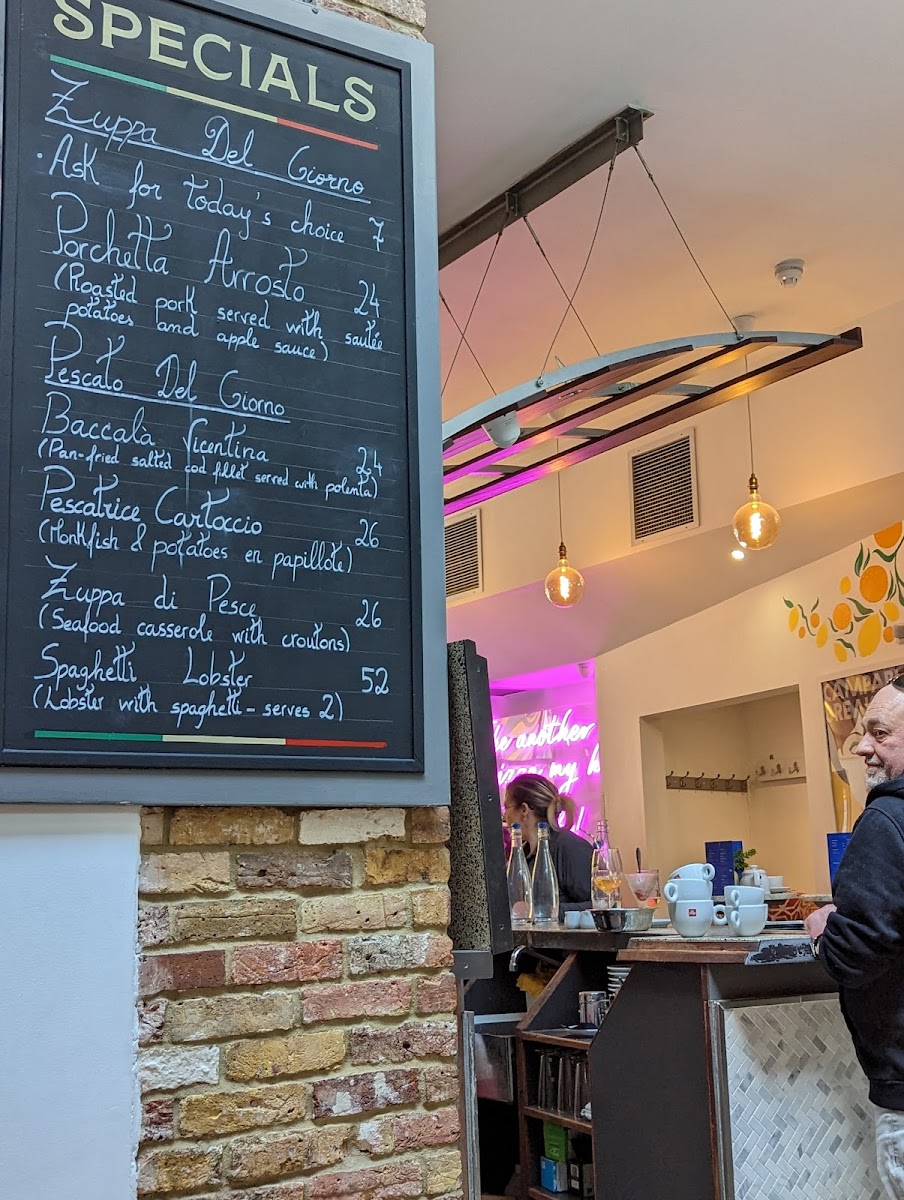 SPECIALS
Zuppa Del Giorno
·Ask for today's choice 7
Porchetta Arrosto 24
(Roasted pork served with sautée
potatoes and apple sauce)
Pescato Del Giorno
Baccalà Vicentina 24
(Pan-fried salted cod fillet served with polenta)
Pescatrice Cartoccio 26
(Monkfish & potatoes en papillote)
Zuppa di Pesce 26
(Seafood casserole with croutons)
Spaghetti Lobster 52
(Lobster with spaghetti - serves 2)
another
my
CAMPARI
illy